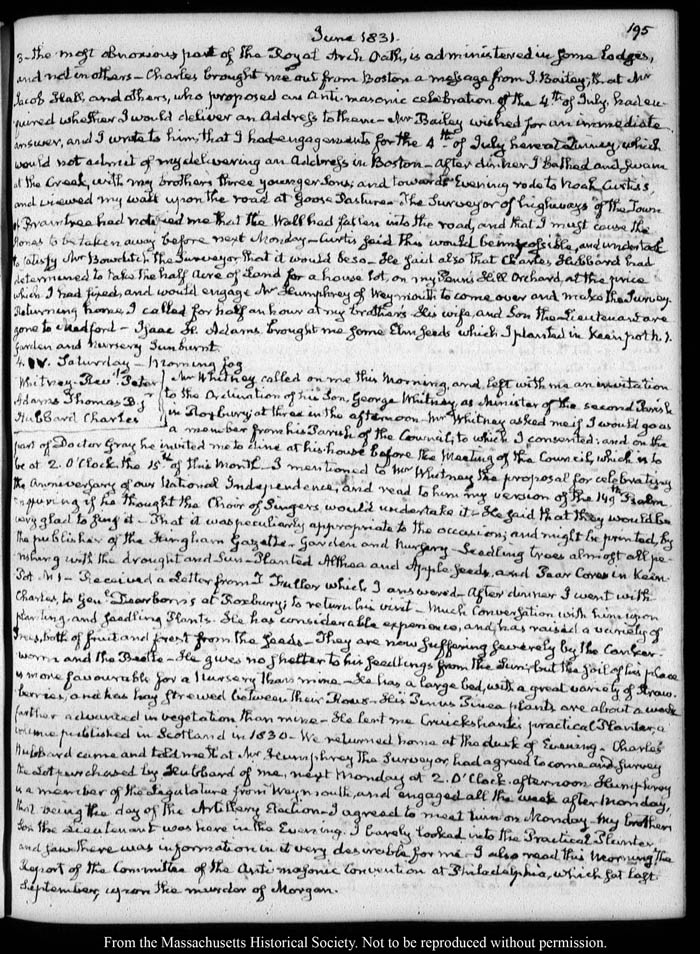 195
June 1831.
3 - the most obnoxious part of the Royal Arch Oath, is administered in some lodges,
and not in others - Charles brought me out from Boston a message from J. Bailey, that Mr
Jacob Hall, and others, who proposed an Anti-masonic celebration of the 4th of July, had en-
quired whether I would deliver an Address to them - Mr Bailey wished for an immediate
answer, and I wrote to him, that I had engagements for the 4th of July here at Quincy, which
would not admit of my delivering an Address in Boston - After dinner I Bathed and swam
at the Creek, with my brothers three younger Sons, and towards Evening rode to Noah Curtis's,
and viewed my wall upon the road at Goose Pasture - The Surveyor of highways of the Town
of Braintree had notified me that the Wall had fallen into the road, and that I must cause the
stones to be taken away before next Monday - Curtis said this would be impossible, and undertook
to satisfy Mr Bowditch the Surveyor that it would be so - He said also that Charles Hubbard had
determined to take the half acre of Land for a house lot, on my Penn's Hill Orchard, at the price
which I had fixed, and would engage Mr Humphrey of Weymouth to come over and make the Survey.
Returning home, I called for half an hour at my brothers - His wife, and Son the Lieutenant are
gone to Medford - Isaac H. Adams brought me some Elm seeds which I planted in Keen pot N. 1.
Garden and Nursery Sunburnt.
4. IV. Saturday - Morning fog
Whitney - Revd Peter
Adams Thomas B. Jr
Hubbard Charles
Mr Whitney called on me this Morning, and left with me an invitation
to the Ordination of his Son, George Whitney, as Minister of the second Parish
in Roxbury, at three in the afternoon - Mr Whitney asked me if I would go as
a member from his Parish of the Council, to which I consented: and on the
part of Doctor Gray he invited me to dine at his house before the Meeting of the Council, which is to
be at 2. O'Clock the 15th of this Month - I mentioned to Mr Whitney the proposal for celebrating
the Anniversary of our National Independence, and read to him my version of the 149 Psalm
enquiring if he thought the Choir of Singers would undertake it - He said that they would be
very glad to sing it - That it was peculiarly appropriate to the occasion, and might be printed, by
the publisher of the Hingham Gazette - Garden and Nursery - Seedling trees almost all pe-
rishing with the drought and Sun - Planted Althea and Apple seeds, and Pear Cores in Keen
Pot N 1 - Received a Letter from T Fuller which I answered - After dinner I went with
Charles, to Genl Dearborn's at Roxbury; to return his visit - Much Conversation with him upon
planting, and seedling Plants - He has considerable experience, and has raised a variety of
trees, both of fruit and forest from the seeds - They are now suffering severely by the Canker-
worm and the Beetle - He gives no shelter to his seedlings from the Sun; but the soil of his place
is more favourable for a Nursery than mine - He has a large bed, with a great variety of Straw-
berries, and has hay strewed between their Rows - His Pinus Pinea plants are about a week
further advanced in vegetation than mine - He lent me Cruickshank's practical Planter, a
volume published in Scotland in 1830 - We returned home at the dusk of Evening - Charles
Hubbard came and told me that Mr Humphrey the Surveyor, had agreed to come and survey
the Lot purchased by Hubbard of me, next Monday at 2. O'Clock afternoon - Humphrey
is a member of the Legislature from Weymouth, and engaged all the week after Monday,
that being the day of the Artillery Election - I agreed to meet him on Monday - My brothers
Son the Lieutenant was here in the Evening. I barely looked into the Practical Planter
and saw there was information in it very desirable for me - I also read this Morning the
Report of the Committee of the Anti masonic Convention at Philadelphia, which sat last
September, upon the murder of Morgan.
From the Massachusetts Historical Society. Not to be reproduced without permission.